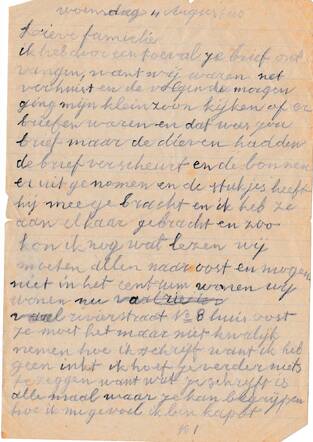 woensdag 4 Augustus
Lieve famielie
ik heb door een toeval je brief ont
vangen, want wij waren net
verhuist en de volgende morgen
ging mijn kleinzoon kijken of er
brieven waren en dat was jou
brief maar de dieven hadden
de brief verscheurt en de bonnen
er uit genomen en de stukjes heeft
hij mee gebracht en ik heb ze
aan elkaar gebracht en zoo
kon ik nog wat lezen wij
moeten allen naar oost en mogen
niet in het centrum wonen wij
wonen nu
zwierstraat No 8 huis oost
ze moet het maar niet kwalijk
nemen hoe ik schrijf want ik heb
geen inkt ik hoef je verder niets
te zeggen want wat je schrijft is
alle maal waar je kan begrijpen
hoe ik mij gevoel ik ben kapot